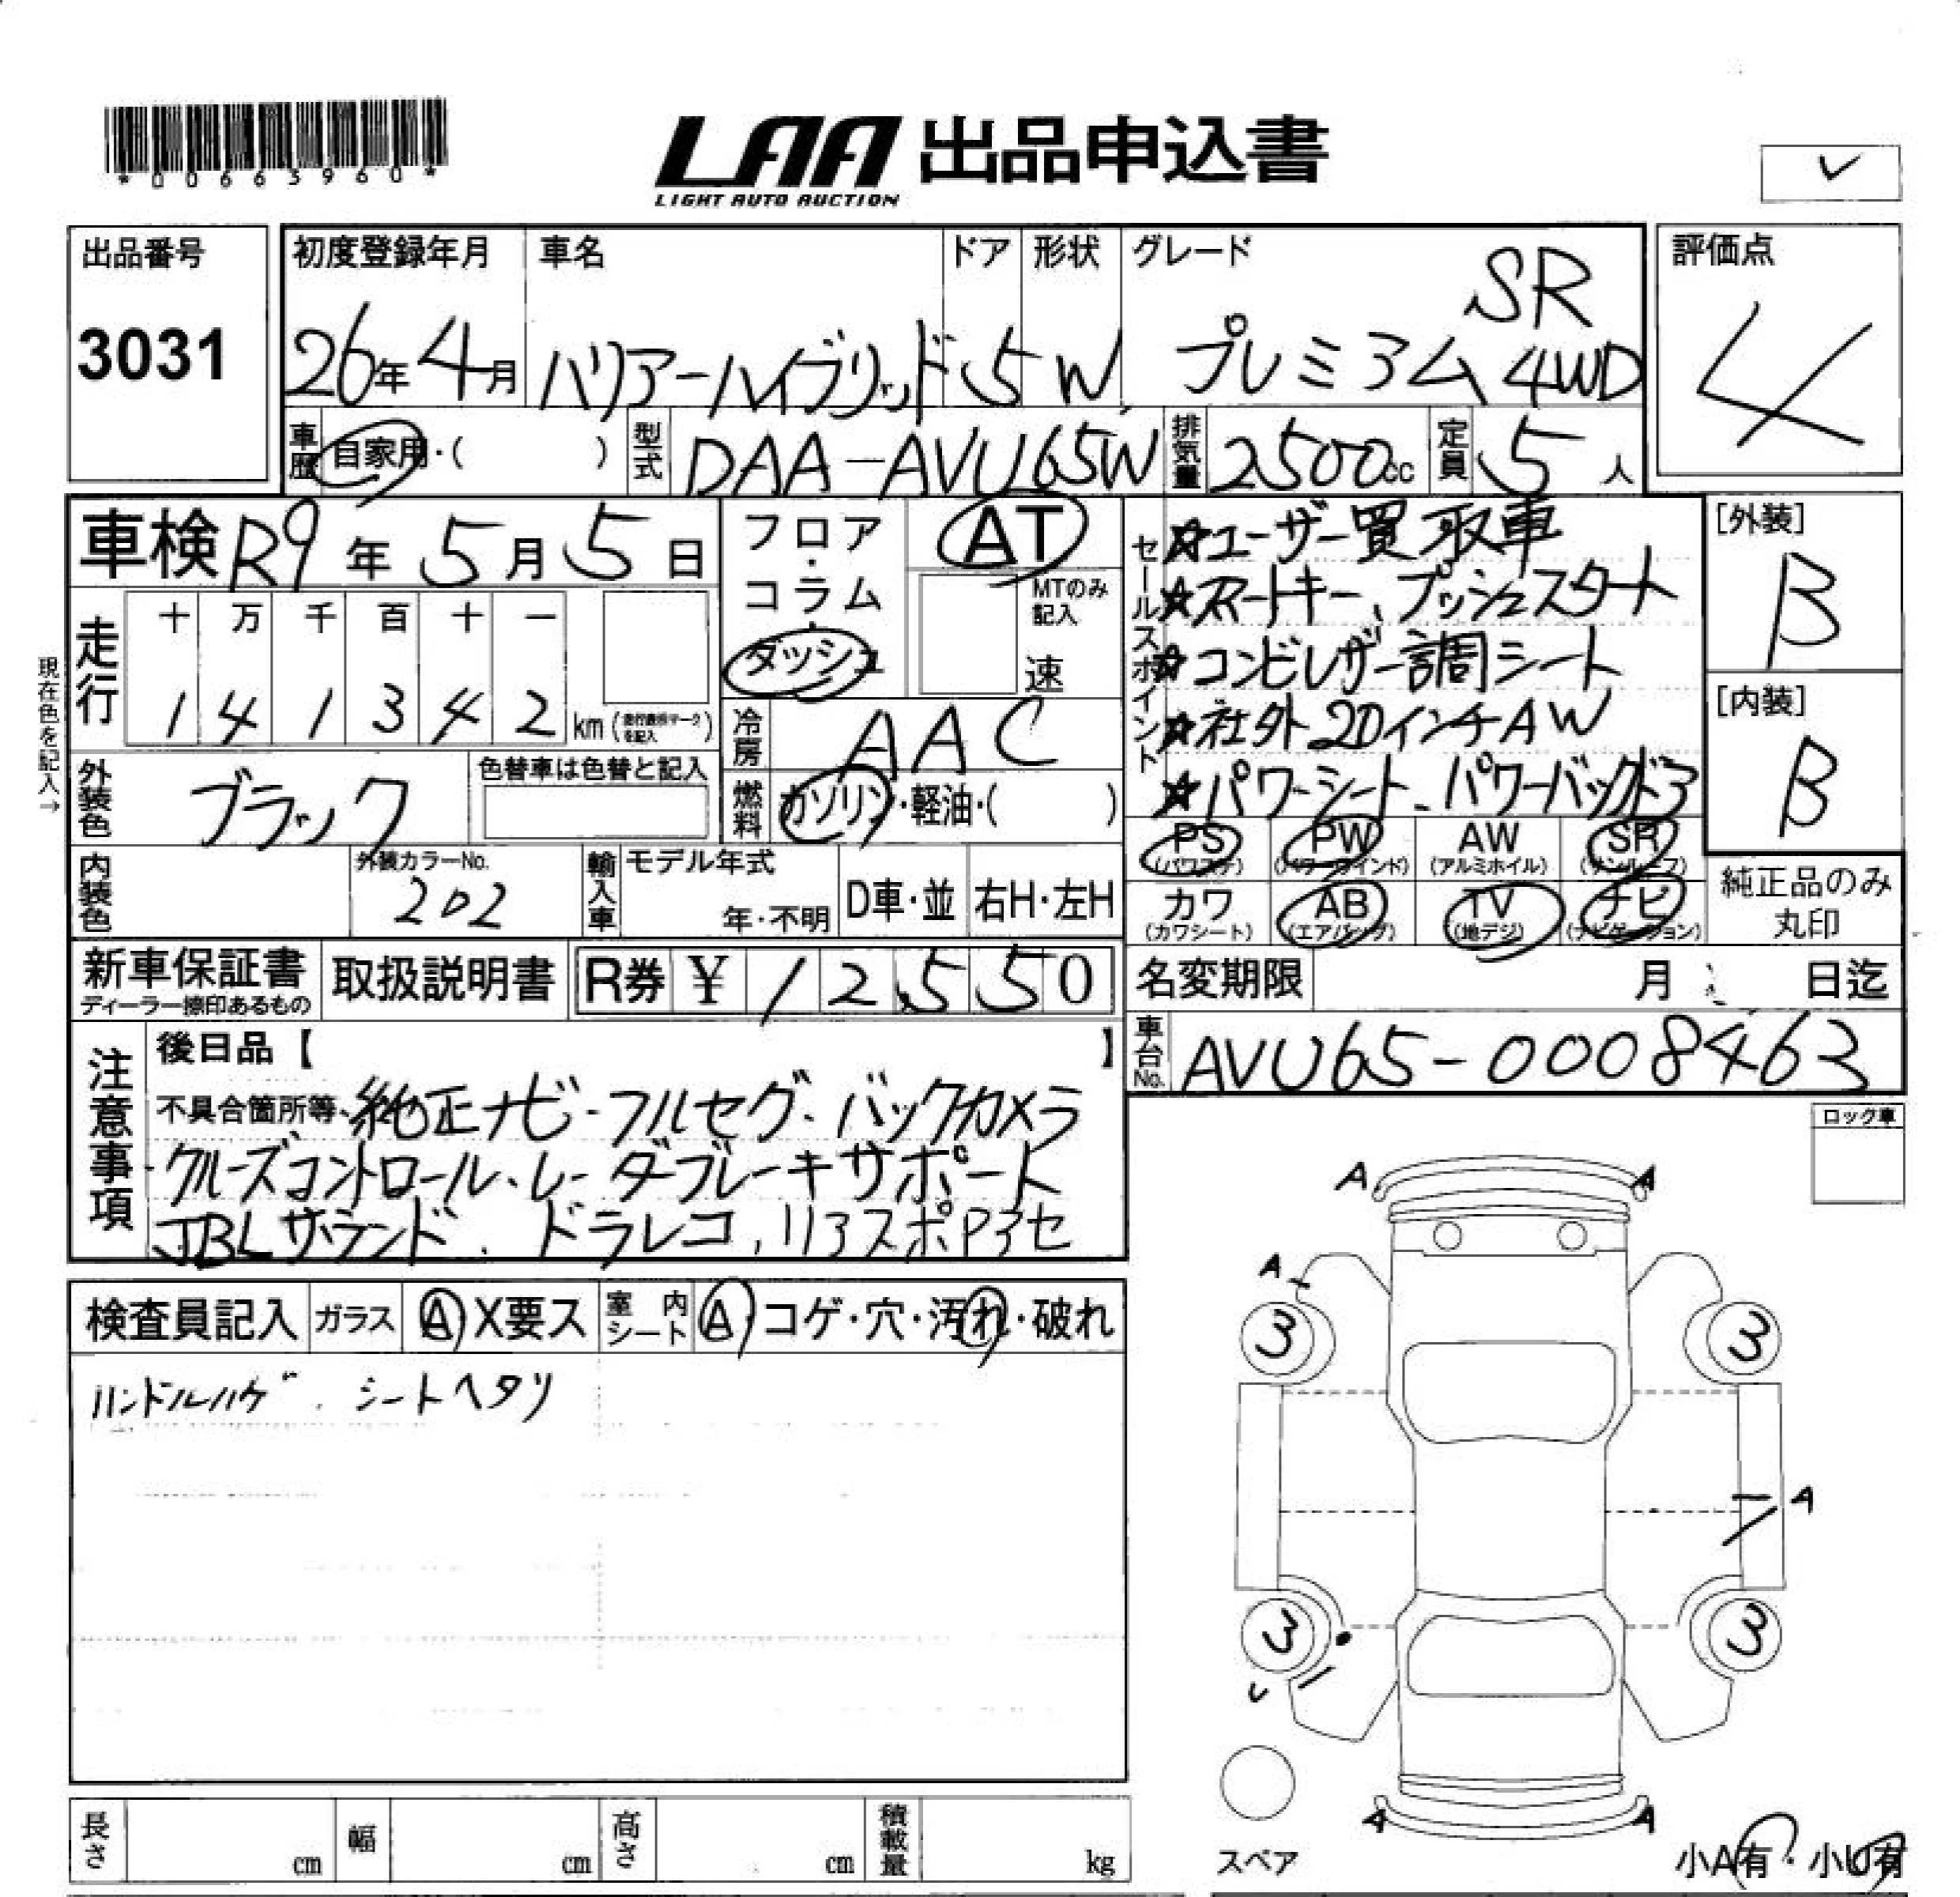 *00663960*
LAA 出品申込書
LIGHT AUTO AUCTION
出品番号
3031
初度登録年月
26年 4月
車名
ハリアーハイブリッド
ドア
5
形状
W
グレード
SR
プレミアム 4WD
評価点
4
車歴 自家用・( )
型式 DAA-AVU65W
排気量 2500cc
定員 5人
車検 R9年 5月 5日
走行
十 万 千 百 十 一
1 4 1 3 4 2 km
現在色を記入→
外装色 ブラック
色替車は色替と記入
内装色
外装カラーNo.
202
輸入車
モデル年式
年・不明
D車・並
右H・左H
フロア・コラム・ダッシュ
AT
MTのみ記入
速
冷房 AAC
燃料 ガソリン・軽油・( )
セールスポイント
☆ユーザー買取車
☆スマートキー、プッシュスタート
☆コンビレザー調シート
☆社外20インチAW
☆パワーシート、パワーバックドア
[外装]
B
[内装]
B
PS (パワステ)
PW (パワーウインド)
AW (アルミホイル)
SR (サンルーフ)
カワ (カワシート)
AB (エアバッグ)
TV (地デジ)
ナビ (ナビゲーション)
純正品のみ
丸印
新車保証書
ディーラー捺印あるもの
取扱説明書
R券 ¥ 12,550
名変期限 月 日迄
車台No. AVU65-0008463
注意事項
後日品【 】
不具合箇所等、純正ナビ・フルセグ・バックカメラ
クルーズコントロール、レーダーブレーキサポート
JBLサウンド、ドラレコ、リアスポ
ロック車
検査員記入
ガラス A X要ス
室内シート A コゲ・穴・汚れ・破れ
ハンドルハゲ、シートヘタリ
A A
A
3 3
A
3 3
A A
スペア
小A有・小U有
長さ cm
幅 cm
高さ cm
積載量 kg